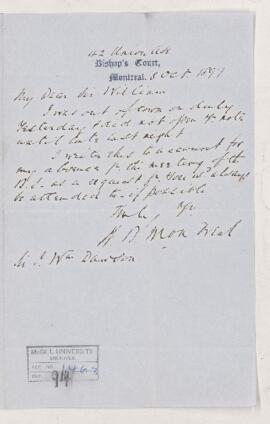 42 Union Av
Bishop's Court,
Montreal. 8 Oct 1897
My Dear Sir William
I was out of town on duty
yesterday & did not open yr note
until late last night
I write this to account for
my absence fr the meeting of the
B.S. as a request fr you wd always
be attended to if possible
Truly yrs
W B Montreal
Sir Wm Dawson
McGILL UNIVERSITY
ARCHIVES
ACC. NO. 1463
REF.